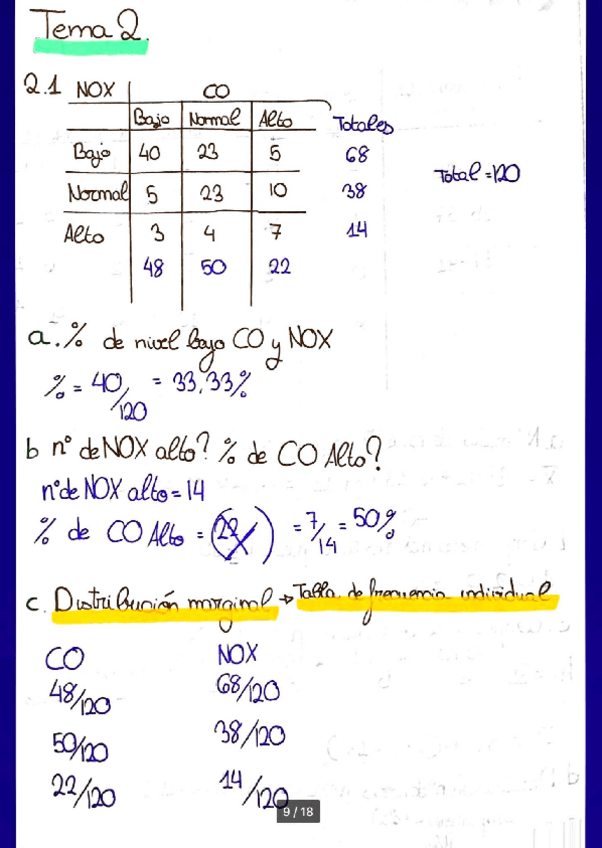 Tema 2.
2.1 NOX CO
Bajo Normal Alto Totales
Bajo 40 23 5 68
Total = 120
Normal 5 23 10 38
Alto 3 4 7 14
48 50 22
a. % de nivel bajo CO y NOX
% = 40/120 = 33,33%
b nº de NOX alto? % de CO Alto?
nº de NOX alto = 14
% de CO Alto = (22) = 7/14 = 50%
c. Distribución marginal → Tabla de frecuencia individual
CO NOX
48/120 68/120
50/120 38/120
22/120 14/120
9 / 18